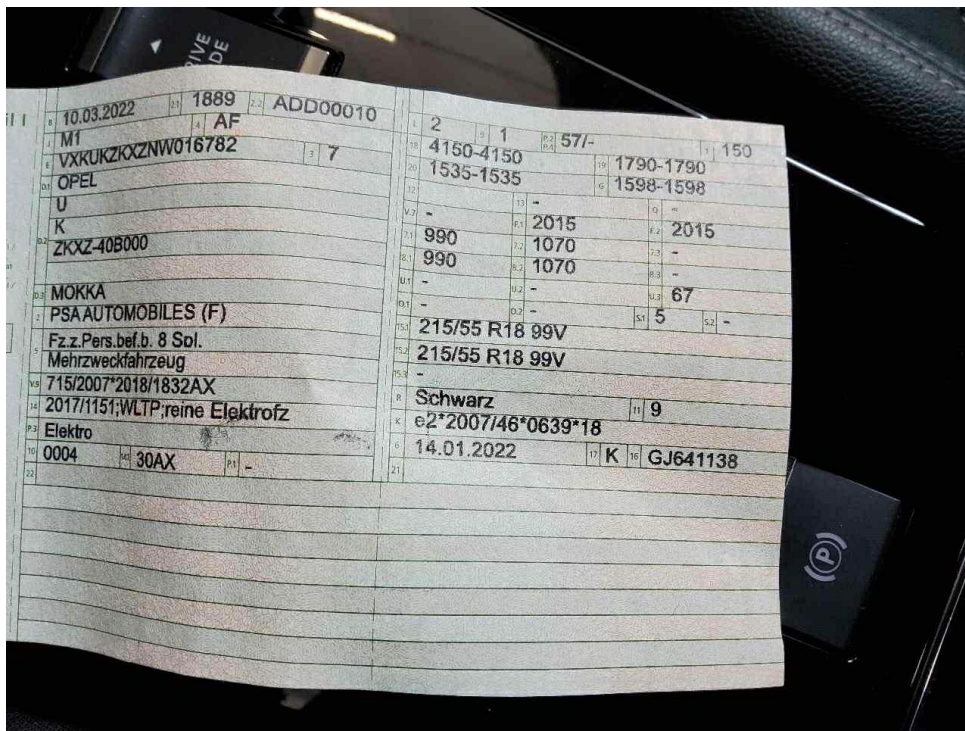 DRIVE
MODE
B 10.03.2022 2.1 1889 2.2 ADD00010
J M1 4 AF
E VXKUKZKXZNW016782 3 7
D.1 OPEL
U
K
D.2 ZKXZ-40B000
D.3 MOKKA
2 PSA AUTOMOBILES (F)
5 Fz.z.Pers.bef.b. 8 Spl.
Mehrzweckfahrzeug
V.9 715/2007*2018/1832AX
14 2017/1151;WLTP;reine Elektrofz
P.3 Elektro
10 0004 14.1 30AX P.1 -
22
L 2 9 1 P.2 P.4 57/- T 150
18 4150-4150 19 1790-1790
20 1535-1535 G 1598-1598
12 13 - Q -
V.7 - F.1 2015 F.2 2015
7.1 990 7.2 1070 7.3 -
8.1 990 8.2 1070 8.3 -
U.1 - U.2 - U.3 67
O.1 - O.2 - S.1 5 S.2 -
15.1 215/55 R18 99V
15.2 215/55 R18 99V
15.3 -
R Schwarz 11 9
K e2*2007/46*0639*18
6 14.01.2022 17 K 16 GJ641138
21
(P)